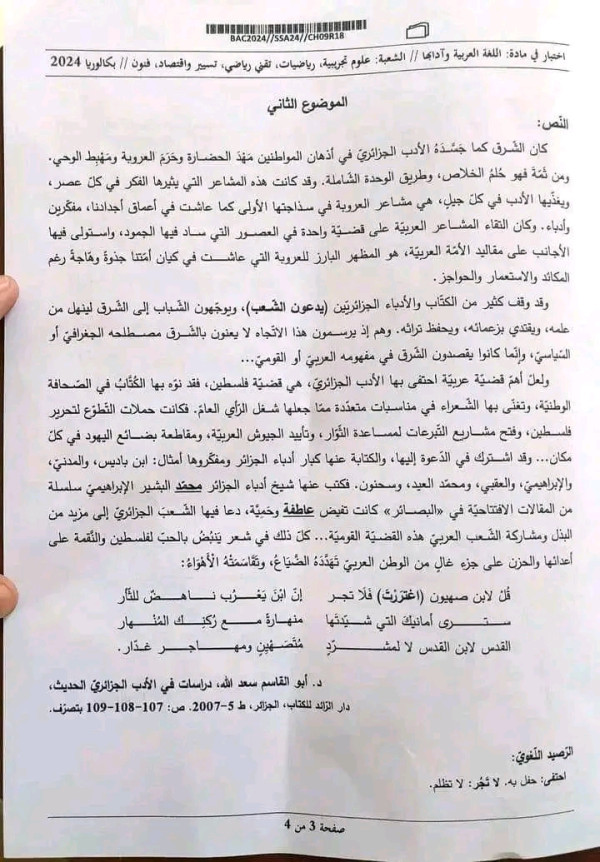 BAC2024//SSA24//CH09R18
اختبار في مادة: اللغة العربية وآدابها // الشعبة: علوم تجريبية، رياضيات، تقني رياضي، تسيير واقتصاد، فنون // بكالوريا 2024
الموضوع الثاني
النّص:
كان الشّرق كما جَسَّدَهُ الأدب الجزائريّ في أذهان المواطنين مَهْدَ الحضارة وحَرَمَ العروبة ومَهْبِط الوحي.
ومن ثَمّةَ فهو حُلمُ الخلاص، وطريق الوحدة الشّاملة. وقد كانت هذه المشاعر التي يثيرها الفكر في كلّ عصر،
ويغذّيها الأدب في كلّ جيلٍ، هي مشاعر العروبة في سذاجتها الأولى كما عاشت في أعماق أجدادنا، مفكّرين
وأدباء. وكان التقاء المشاعر العربيّة على قضيّة واحدة في العصور التي ساد فيها الجمود، واستولى فيها
الأجانب على مقاليد الأمّة العربيّة، هو المظهر البارز للعروبة التي عاشت في كيان أمّتنا جذوةً وهّاجةً رغم
المكائد والاستعمار والحواجز.
وقد وقف كثير من الكتّاب والأدباء الجزائريّين (يدعون الشّعب)، ويوجّهون الشّباب إلى الشّرق لينهل من
علمه، ويقتدي بزعمائه، ويحفظ تراثه. وهم إذ يرسمون هذا الاتّجاه لا يعنون بالشّرق مصطلحه الجغرافيّ أو
السّياسيّ، وإنّما كانوا يقصدون الشّرق في مفهومه العربيّ أو القوميّ...
ولعلّ أهمّ قضيّة عربية احتفى بها الأدب الجزائريّ، هي قضيّة فلسطين، فقد نوّه بها الكُتَّابُ في الصّحافة
الوطنيّة، وتغنّى بها الشّعراء في مناسبات متعدّدة ممّا جعلها شغل الرّأي العامّ. فكانت حملات التّطوّع لتحرير
فلسطين، وفتح مشاريع التّبرعات لمساعدة الثّوّار، وتأييد الجيوش العربيّة، ومقاطعة بضائع اليهود في كلّ
مكان... وقد اشترك في الدّعوة إليها، والكتابة عنها كبار أدباء الجزائر ومفكّروها أمثال: ابن باديس، والمدنيّ،
والإبراهيميّ، والعقبي، ومحمّد العيد، وسحنون. فكتب عنها شيخ أدباء الجزائر محمّد البشير الإبراهيميّ سلسلة
من المقالات الافتتاحيّة في «البصائر» كانت تفيض عاطفة وحَمِيَّة، دعا فيها الشّعبَ الجزائريّ إلى مزيد من
البذل ومشاركة الشّعب العربي هذه القضيّة القوميّة... كلّ ذلك في شعر يَنبُضُ بالحبّ لفلسطين والنّقمة على
أعدائها والحزن على جزءٍ غالٍ من الوطن العربيّ تَهَدَّدَهُ الضَّيَاعُ، وتَقَاسَمَتْهُ الْأَهْوَاءُ:
قُلْ لابن صهيون (اغتررتَ) فَلَا تجر إنّ ابْنَ يَعْرُب ناهضٌ للثّأر
سترى أمانيكَ التي شيّدتَها منهارةً مع رُكنِك المُنهَار
القدس لابن القدس لا لمشرّدٍ مُتَصَهْيِنٍ ومهاجرٍ غدّار.
د. أبو القاسم سعد الله، دراسات في الأدب الجزائريّ الحديث،
دار الرّائد للكتاب، الجزائر، ط 5-2007. ص: 107-108-109 بتصرّف.
الرّصيد اللّغويّ:
احتفى: حفل به. لا تَجُر: لا تظلم.
صفحة 3 من 4